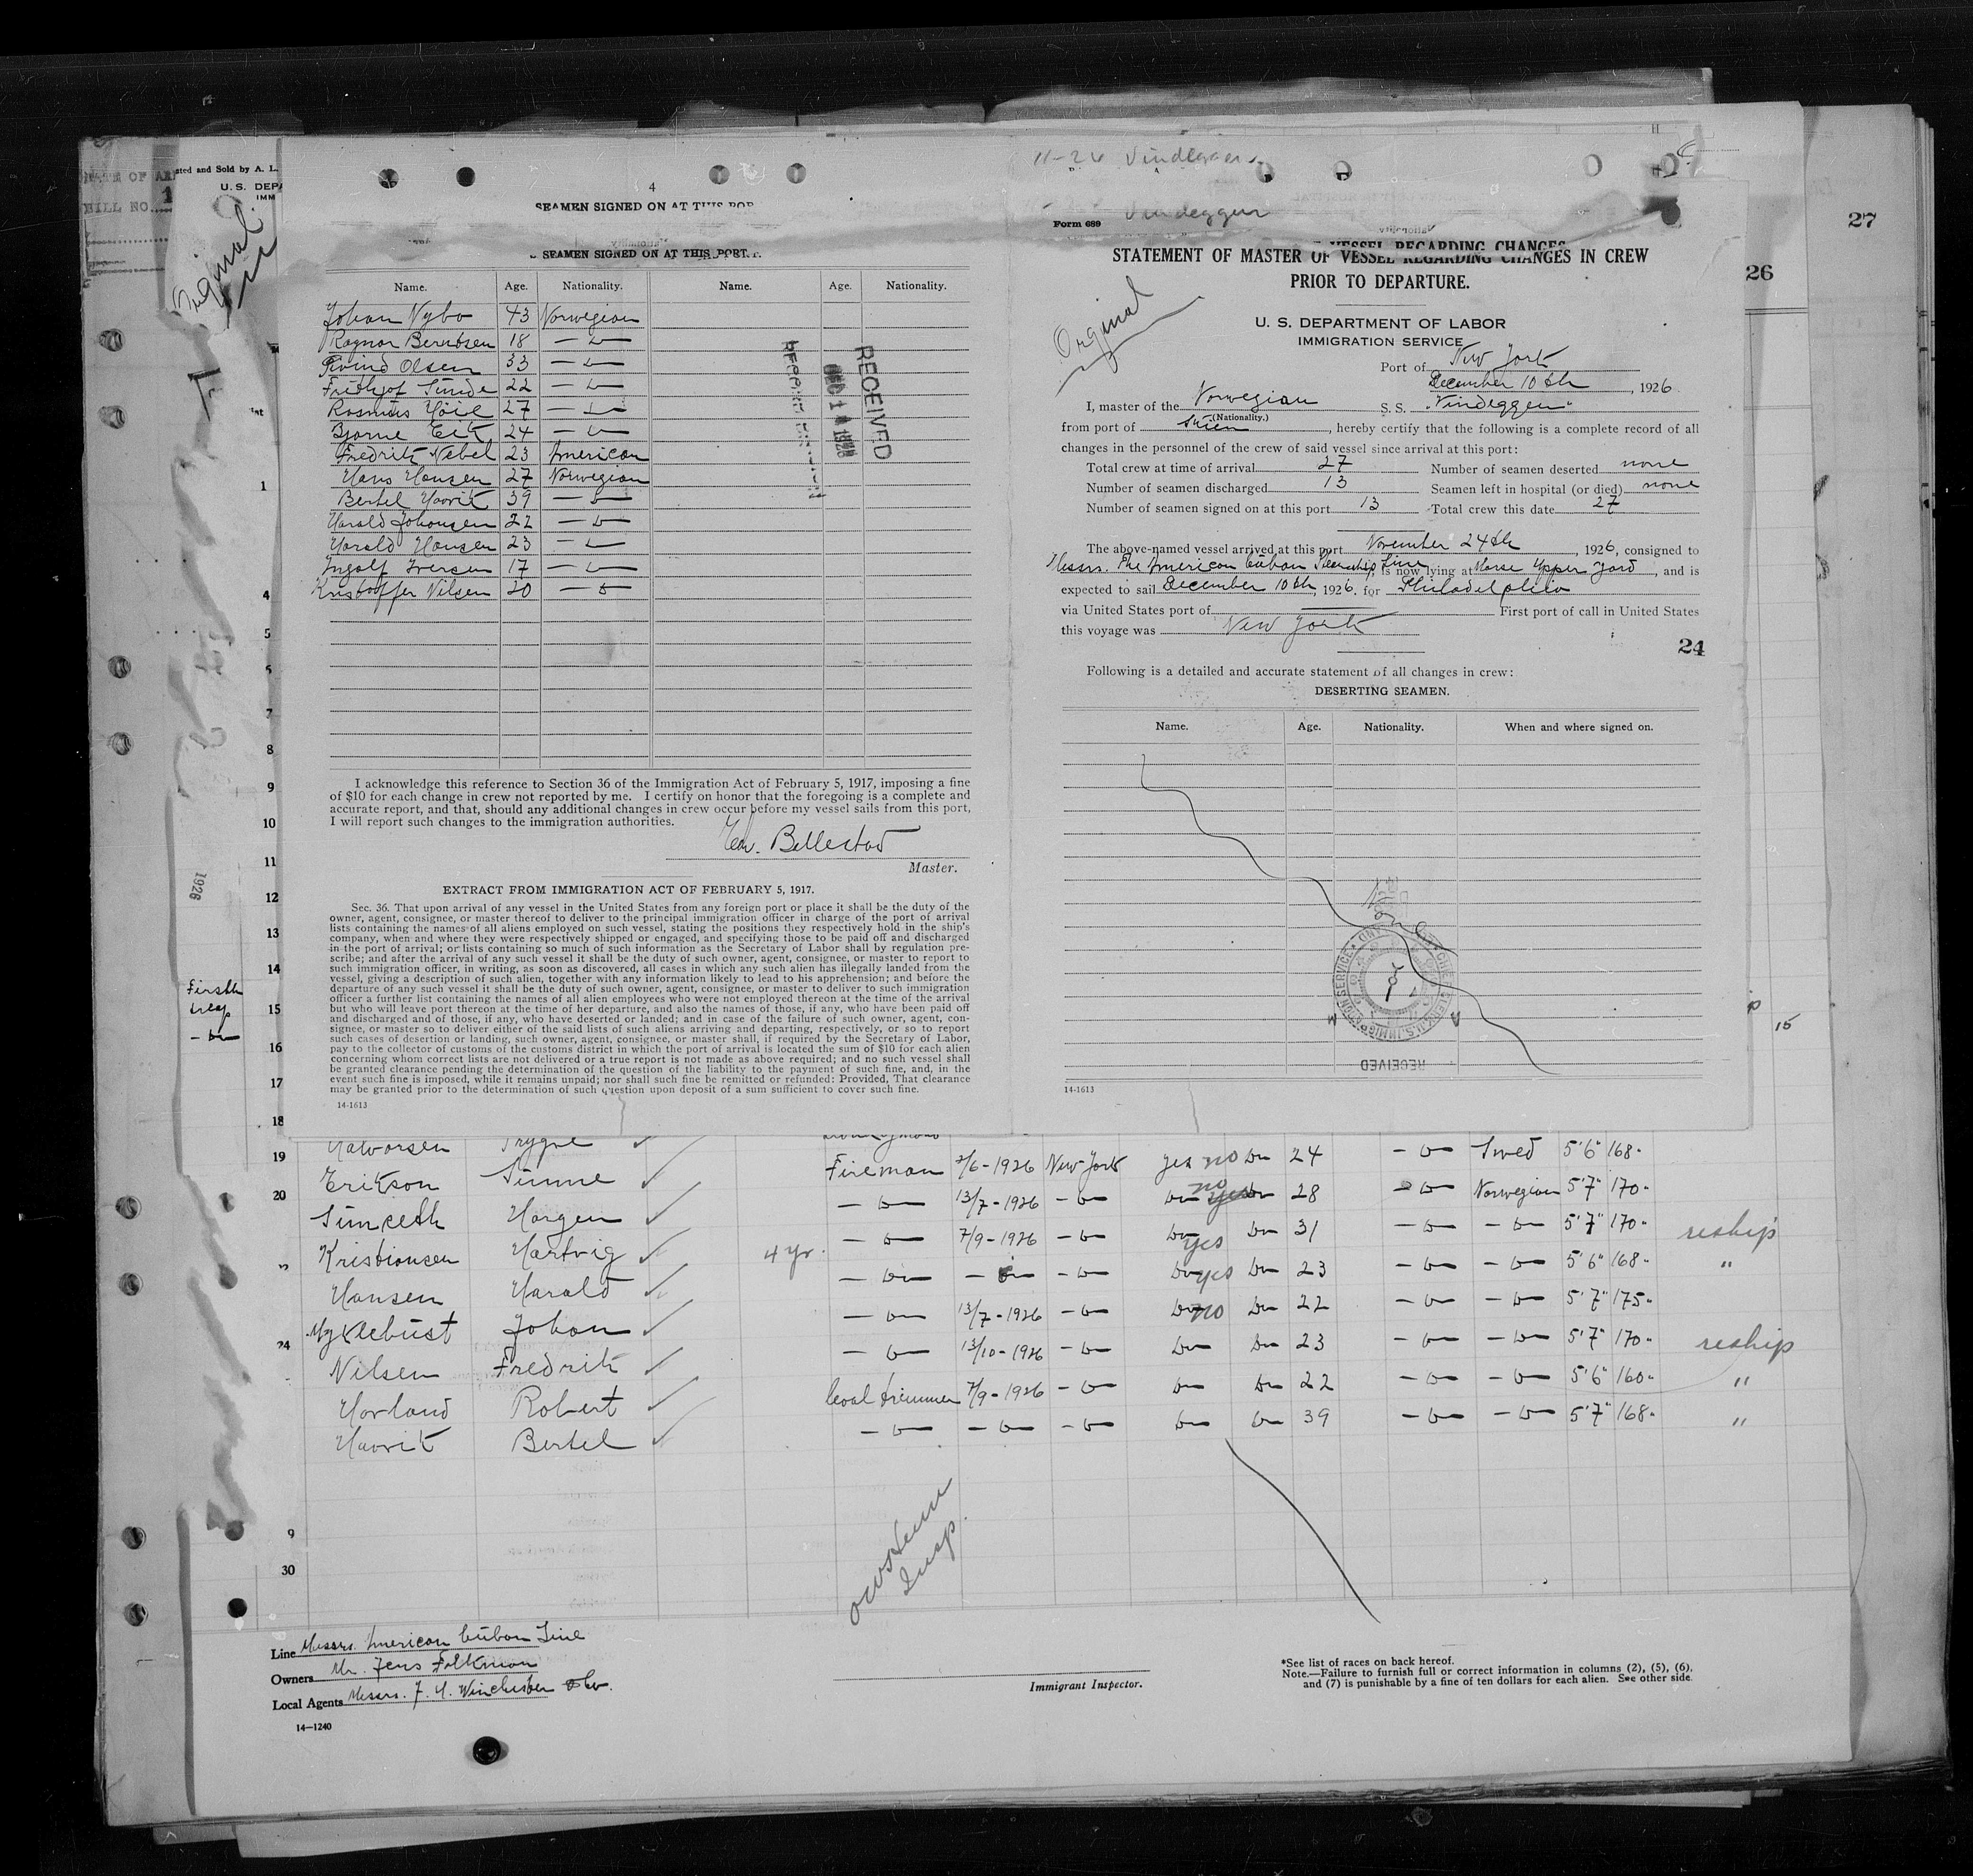 27
26
DATE OF AR
BILL NO. 1
sted and Sold by A. L.
U. S. DEPA
IMM
Original
4
SEAMEN SIGNED ON AT THIS POR
SEAMEN SIGNED ON AT THIS PORT.
Name. Age. Nationality. Name. Age. Nationality.
Johan Nybo 43 Norwegian
Ragnar Berntsen 18 — " —
Eivind Olsen 33 — " —
Fridtjof Sunde 22 — " —
Rasmus 27 — " —
Bjarne Eik 24 — " —
Fredrik Nebel 23 American
Hans Hansen 27 Norwegian
Bertel Haavik 39 — " —
Harald Johansen 22 — " —
Harald Hansen 23 — " —
Ingolf Iversen 17 — " —
Kristoffer Nilsen 20 — " —
RECEIVED
DEC 1 1926
I acknowledge this reference to Section 36 of the Immigration Act of February 5, 1917, imposing a fine
of $10 for each change in crew not reported by me. I certify on honor that the foregoing is a complete and
accurate report, and that, should any additional changes in crew occur before my vessel sails from this port,
I will report such changes to the immigration authorities.
Master.
EXTRACT FROM IMMIGRATION ACT OF FEBRUARY 5, 1917.
Sec. 36. That upon arrival of any vessel in the United States from any foreign port or place it shall be the duty of the
owner, agent, consignee, or master thereof to deliver to the principal immigration officer in charge of the port of arrival
lists containing the names of all aliens employed on such vessel, stating the positions they respectively hold in the ship's
company, when and where they were respectively shipped or engaged, and specifying those to be paid off and discharged
in the port of arrival; or lists containing so much of such information as the Secretary of Labor shall by regulation pre-
scribe; and after the arrival of any such vessel it shall be the duty of such owner, agent, consignee, or master to report to
such immigration officer, in writing, as soon as discovered, all cases in which any such alien has illegally landed from the
vessel, giving a description of such alien, together with any information likely to lead to his apprehension; and before the
departure of any such vessel it shall be the duty of such owner, agent, consignee, or master to deliver to such immigration
officer a further list containing the names of all alien employees who were not employed thereon at the time of the arrival
but who will leave port thereon at the time of her departure, and also the names of those, if any, who have been paid off
and discharged and of those, if any, who have deserted or landed; and in case of the failure of such owner, agent, con-
signee, or master so to deliver either of the said lists of such aliens arriving and departing, respectively, or so to report
such cases of desertion or landing, such owner, agent, consignee, or master shall, if required by the Secretary of Labor,
pay to the collector of customs of the customs district in which the port of arrival is located the sum of $10 for each alien
concerning whom correct lists are not delivered or a true report is not made as above required; and no such vessel shall
be granted clearance pending the determination of the question of the liability to the payment of such fine, and, in the
event such fine is imposed, while it remains unpaid; nor shall such fine be remitted or refunded: Provided, That clearance
may be granted prior to the determination of such question upon deposit of a sum sufficient to cover such fine.
14-1613
11-26 Vindeggen
Form 689 Vindeggen
VESSEL REGARDING CHANGES
STATEMENT OF MASTER OF VESSEL REGARDING CHANGES IN CREW
PRIOR TO DEPARTURE.
Orginal
U. S. DEPARTMENT OF LABOR
IMMIGRATION SERVICE
Port of New York
December 10th, 1926.
I, master of the Norwegian S. S. "Vindeggen"
(Nationality.)
from port of Skien, hereby certify that the following is a complete record of all
changes in the personnel of the crew of said vessel since arrival at this port:
Total crew at time of arrival 27 Number of seamen deserted none
Number of seamen discharged 13 Seamen left in hospital (or died) none
Number of seamen signed on at this port 13 Total crew this date 27
The above-named vessel arrived at this port November 24th, 1926, consigned to
Messrs. The American Cuban Steamship Line, is now lying at Morse Upper Yard, and is
expected to sail December 10th, 1926, for Philadelphia
via United States port of First port of call in United States
this voyage was New York
24
Following is a detailed and accurate statement of all changes in crew:
DESERTING SEAMEN.
Name. Age. Nationality. When and where signed on.
RECEIVED
14-1613
1
4
5
6
7
8
9
10
11
12
13
14
15
16
17
18
1926
15
Halvorsen Trygve
19 Erikson Sunne Fireman 2/6-1926 New York yes no Do 24 — " — Swed 5'6" 168
20 Hargen — " — 13/7-1926 — " — Do no yes Do 28 — " — Norwegian 5'7" 170
Kristiansen Hartvig 4 yr. — " — 7/9-1926 — " — Do yes Do 31 — " — — " — 5'7" 170 reship
Hansen Harald — " — — " — — " — Do yes Do 23 — " — — " — 5'6" 168 "
Myklebust Johan — " — 13/7-1926 — " — Do no Do 22 — " — — " — 5'7" 175
24 Nilsen Fredrik — " — 13/10-1926 — " — Do Do 23 — " — — " — 5'7" 170 reship
Havland Robert Coal trimmer 7/9-1926 — " — Do Do 22 — " — — " — 5'6" 160 "
Haavik Bertel — " — — " — — " — Do Do 39 — " — — " — 5'7" 168 "
9
30
Insp.
Line Messrs. American Cuban Line
Owners Mr. Jens Folkman
Local Agents Messrs. Winchester & Co.
14—1240
Immigrant Inspector.
*See list of races on back hereof.
Note.—Failure to furnish full or correct information in columns (2), (5), (6),
and (7) is punishable by a fine of ten dollars for each alien. See other side.